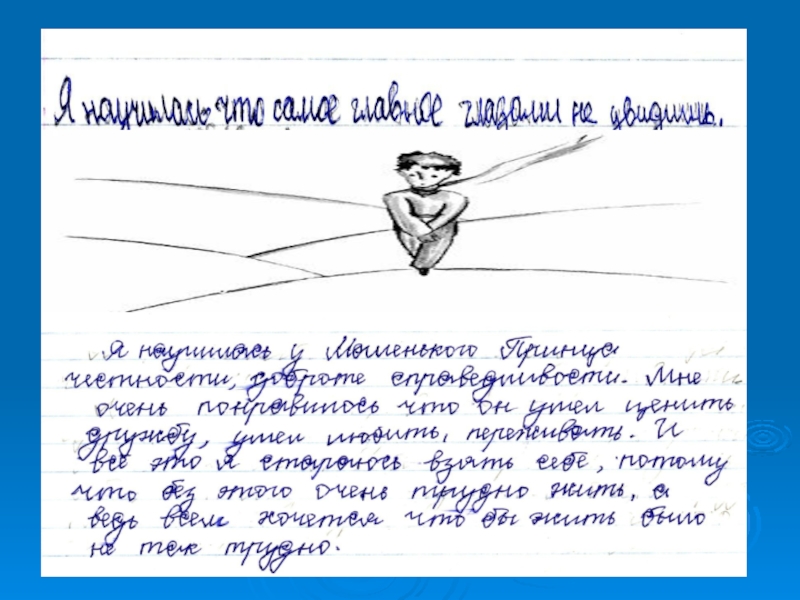 Я научилась что самое главное глазами не увидишь.
Я научилась у Маленького Принца
честности, доброте справедливости. Мне
очень понравилось что он умел ценить
дружбу, умел любить, переживать. И
всё это я стараюсь взять себе, потому
что без этого очень трудно жить, а
ведь всем хочется что бы жить было
не так трудно.